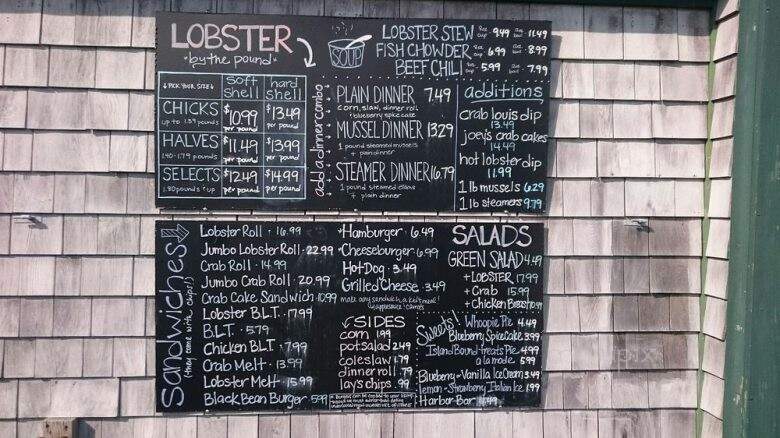 LOBSTER
*by the pound*
↓PICK YOUR SIZE↓ soft shell hard shell
CHICKS
up to 1.39 pounds
$10.99 per pound $13.49 per pound
HALVES
1.40-1.79 pounds
$11.49 per pound $13.99 per pound
SELECTS
1.80 pounds & up
$12.49 per pound $14.99 per pound
SOUP
LOBSTER STEW 8oz cup 9.49 12oz bowl 11.49
FISH CHOWDER 8oz cup 6.99 12oz bowl 8.99
BEEF CHILI 8oz cup 5.99 12oz bowl 7.99
add a dinner combo
PLAIN DINNER 7.49
corn, slaw, dinner roll
+ blueberry spice cake
MUSSEL DINNER 13.29
1 pound steamed mussels
+ plain dinner
STEAMER DINNER 16.79
1 pound steamed clams
+ plain dinner
additions
crab louis dip
13.49
joey's crab cakes
14.49
hot lobster dip
11.99
1 lb mussels 6.29
1 lb steamers 9.79
Sandwiches
(they come with chips!)
Lobster Roll · 16.99
Jumbo Lobster Roll · 22.99
Crab Roll · 14.99
Jumbo Crab Roll · 20.99
Crab Cake Sandwich · 10.99
Lobster B.L.T. · 17.99
B.L.T. · 5.79
Chicken B.L.T. · 7.99
Crab Melt · 13.99
Lobster Melt · 15.99
Black Bean Burger · 5.99
*Hamburger · 6.49
*Cheeseburger · 6.99
Hot Dog · 3.49
Grilled Cheese · 3.49
make any sandwich a kid's meal!
SIDES
corn 1.99
pot salad 2.49
coleslaw 1.79
dinner roll .79
lay's chips .99
SALADS
GREEN SALAD 4.49
+ LOBSTER 17.99
+ Crab 15.99
+ Chicken Breast 10.99
Sweets!
Whoopie Pie 4.49
Blueberry Spice Cake 3.99
Island Bound treats Pie 4.99
a la mode 5.99
Blueberry - Vanilla Ice Cream 3.49
lemon - Strawberry Italian Ice 1.99
Harbor Bar